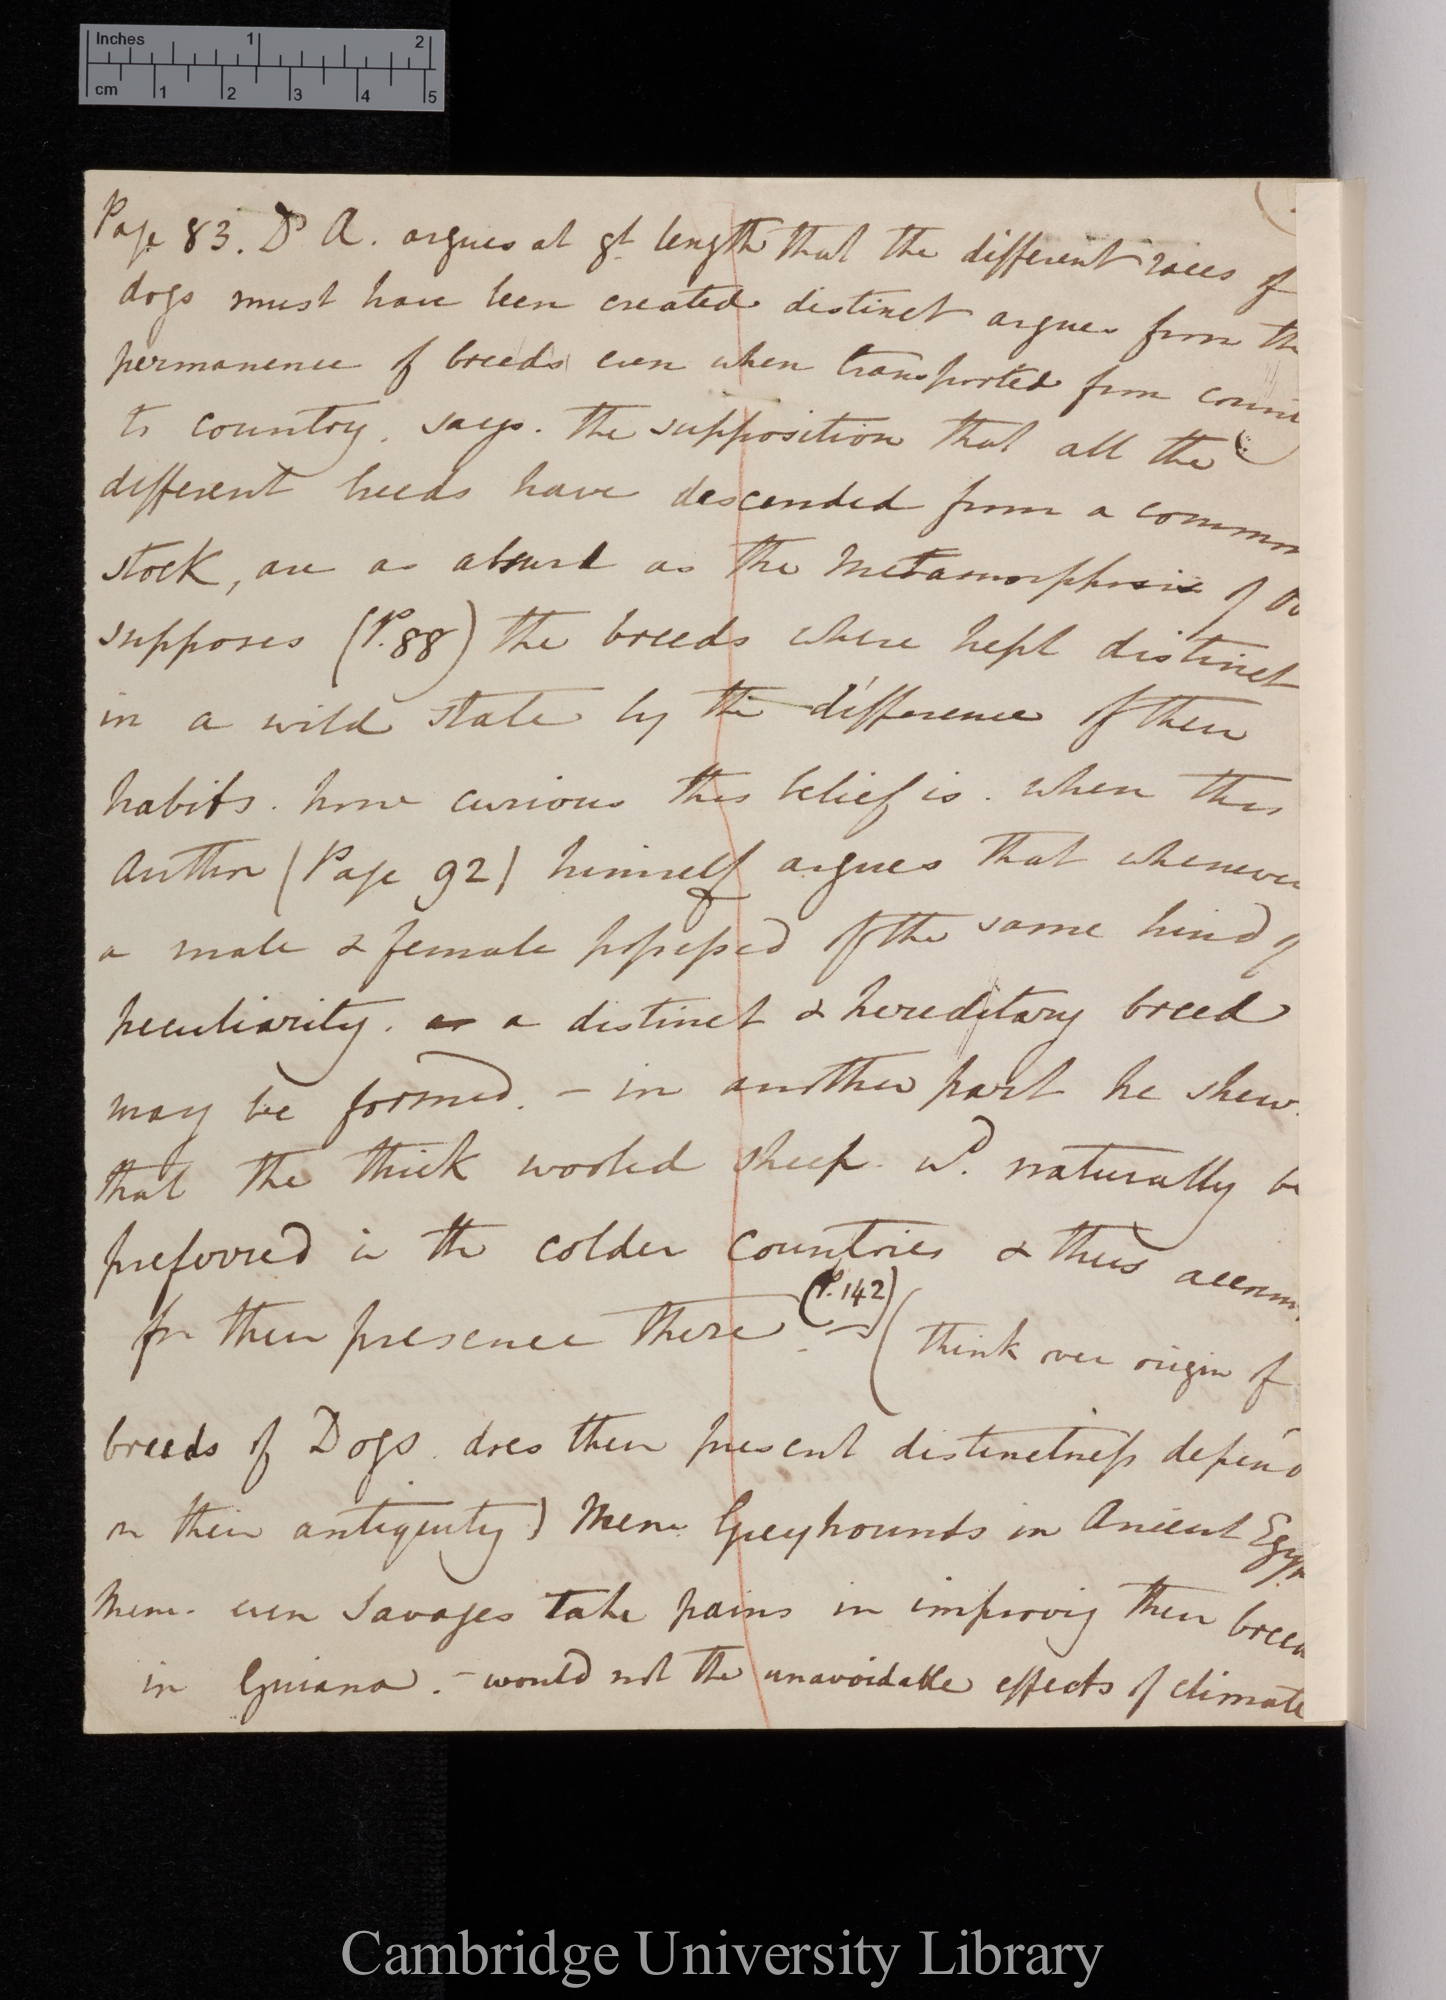 Inches 1 2
cm 1 2 3 4 5
Page 83. Dr A. argues at gt. length that the different races of
dogs must have been created distinct argues from th
permanence of breeds even when transported from coun
to country. says. the supposition that all the
different breeds have descended from a common
stock, are as absurd as the metamorphosis of
supposes (P.88) the breeds where kept distinct
in a wild state by the difference of their
habits. how curious this belief is. when this
Author (Page 92) himself argues that whenever
a male & female possessed of the same kind of
peculiarity. a distinct & hereditary breed
may be formed. – in another part he shews
that the thick wooled sheep. wd. naturally be
preferred in the colder countries & thus accoun
for their presence there (P.142) (think over origin of
breeds of Dogs. does their present distinctness depend
on their antiquity) Mem: Greyhounds in Ancient Egyp
Mem. even Savages take pains in improvig their breed
in Guiana. – would not the unavoidable effects of climate
Cambridge University Library